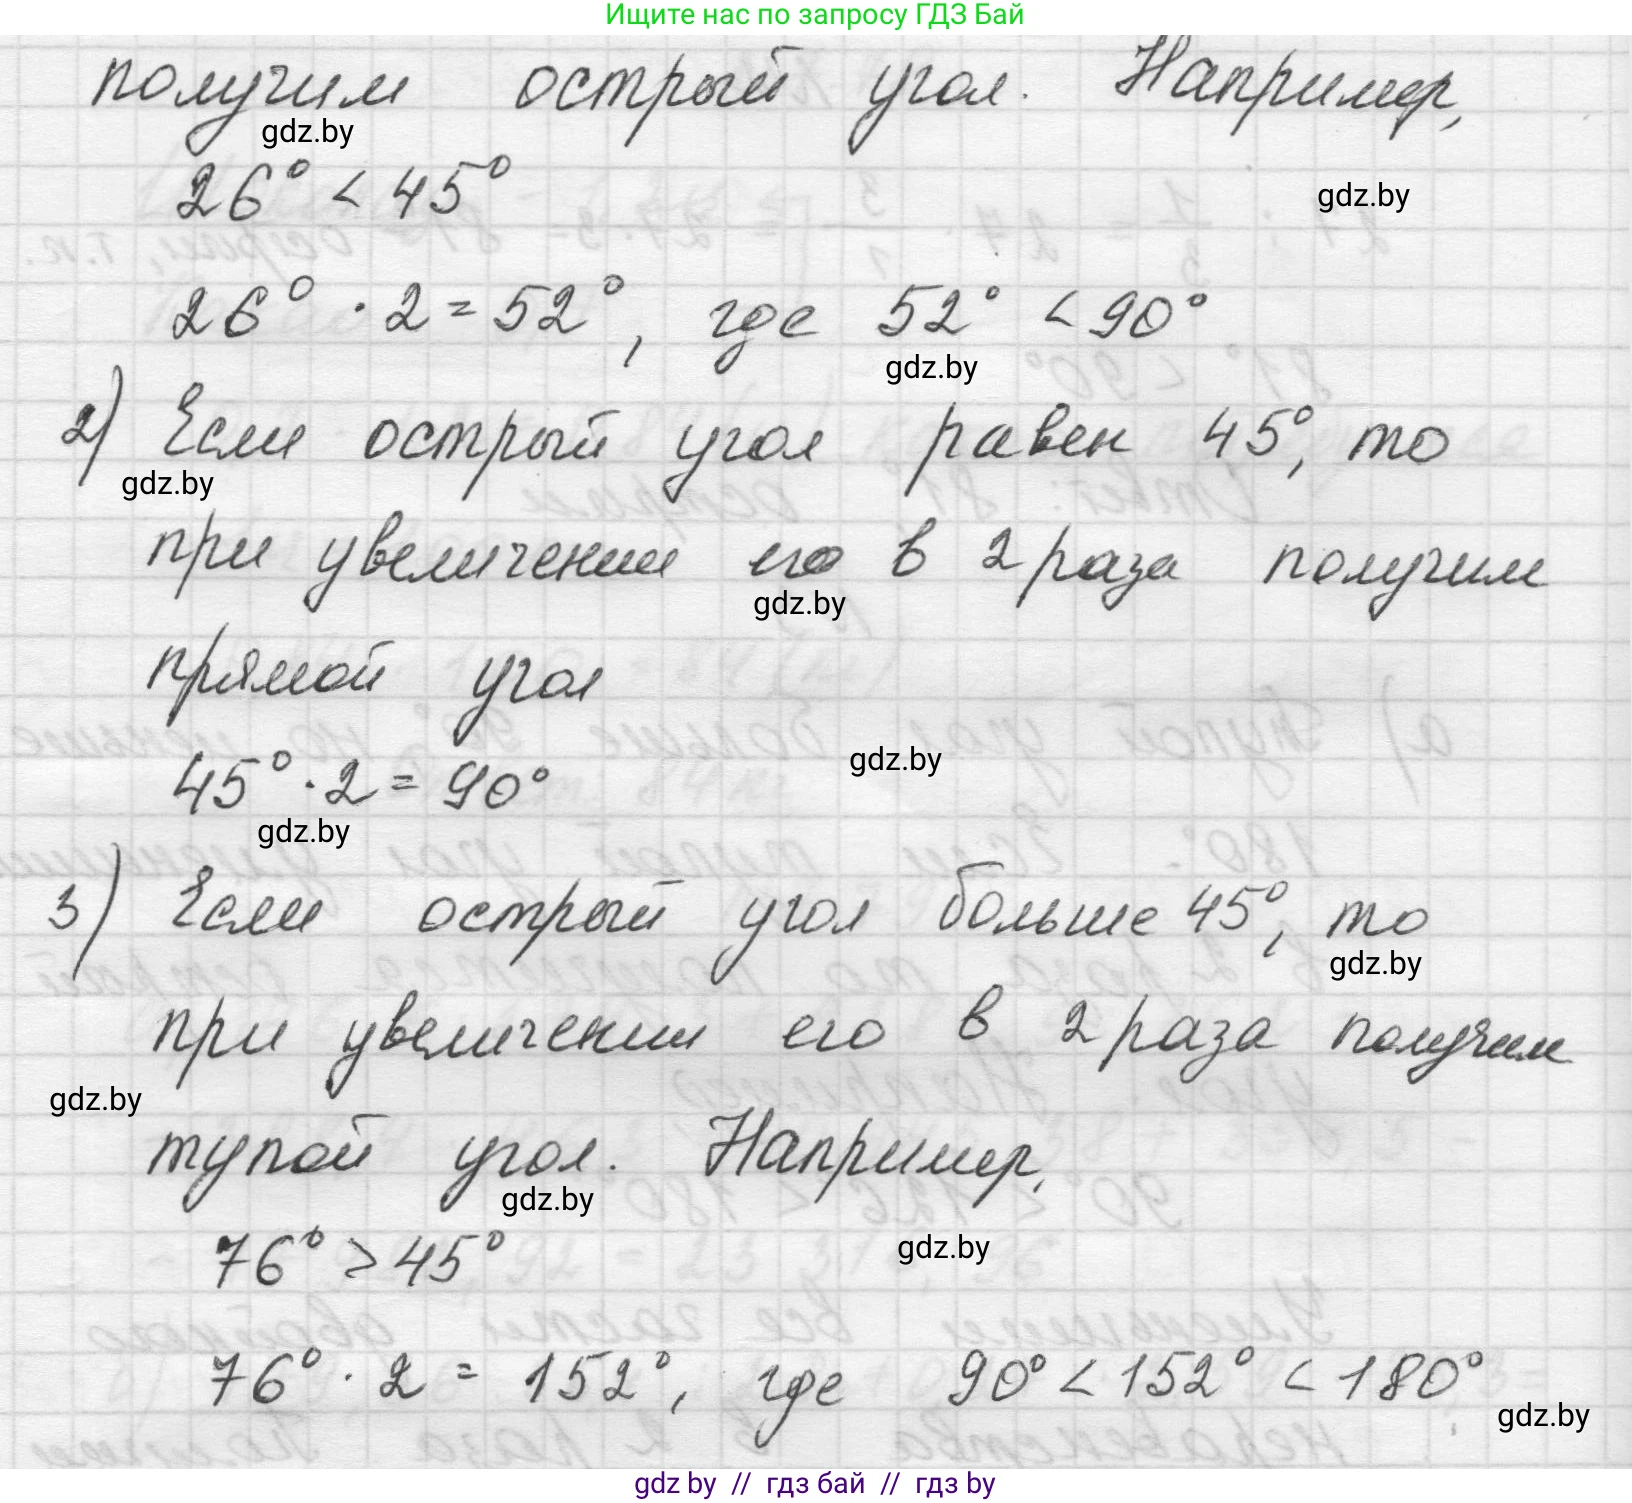 Ищите нас по запросу ГДЗ Бай
получим острый угол. Например,
gdz.by
26° < 45°
gdz.by
26° · 2 = 52°, где 52° < 90°
gdz.by
2) Если острый угол равен 45°, то
gdz.by
при увеличении его в 2 раза получим
gdz.by
прямой угол
gdz.by
45° · 2 = 90°
gdz.by
3) Если острый угол больше 45°, то
gdz.by
при увеличении его в 2 раза получим
gdz.by
тупой угол. Например,
gdz.by
76° > 45°
gdz.by
76° · 2 = 152°, где 90° < 152° < 180°
gdz.by
gdz.by // гдз бай // гдз by